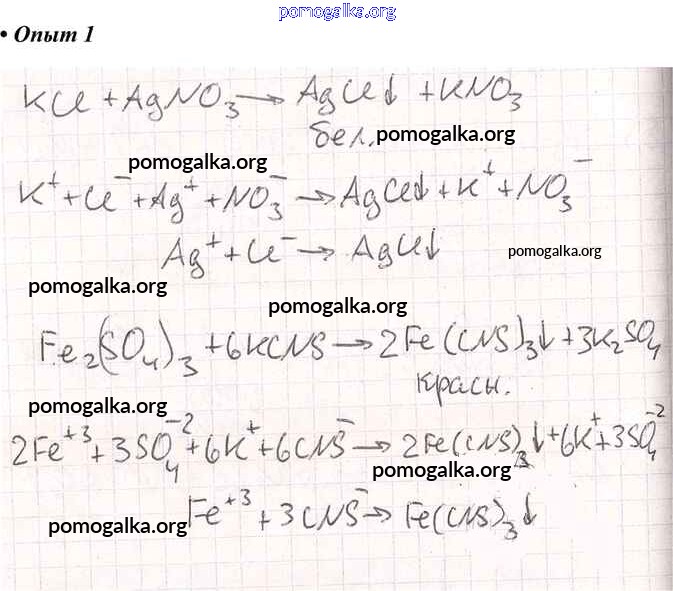 pomogalka.org
• Опыт 1
KCl + AgNO₃ → AgCl↓ + KNO₃
бел. pomogalka.org
pomogalka.org
K⁺ + Cl⁻ + Ag⁺ + NO₃⁻ → AgCl↓ + K⁺ + NO₃⁻
Ag⁺ + Cl⁻ → AgCl↓ pomogalka.org
pomogalka.org
pomogalka.org
Fe₂(SO₄)₃ + 6KCNS → 2Fe(CNS)₃↓ + 3K₂SO₄
красн.
pomogalka.org
2Fe⁺³ + 3SO₄⁻² + 6K⁺ + 6CNS⁻ → 2Fe(CNS)₃↓ + 6K⁺ + 3SO₄⁻²
pomogalka.org
Fe⁺³ + 3CNS⁻ → Fe(CNS)₃↓
pomogalka.org